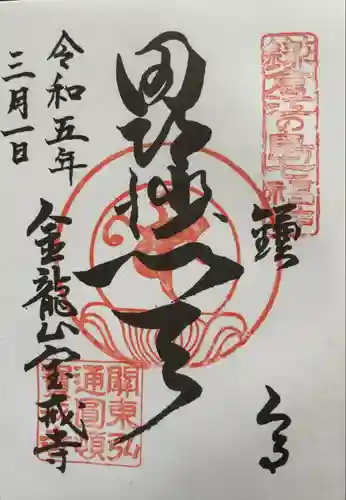 鎌倉江の島七福神
鎌倉
毘沙門天
令和五年
三月一日
金龍山宝戒寺
關東弘
通圓頓